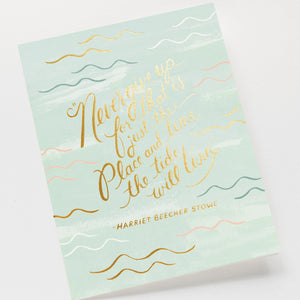 "Never give up
for that is
just the
Place and time
the tide
will turn."
-HARRIET BEECHER STOWE